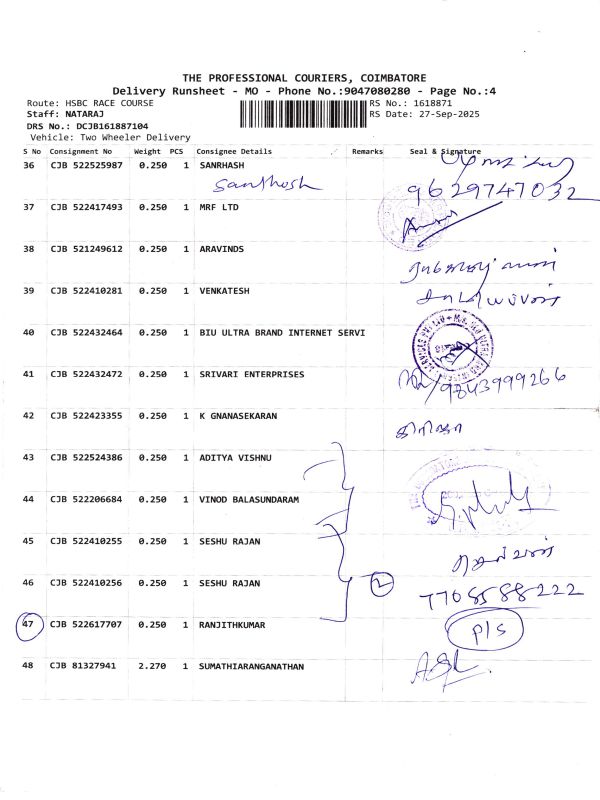 THE PROFESSIONAL COURIERS, COIMBATORE
Delivery Runsheet - MO - Phone No.:9047080280 - Page No.:4
Route: HSBC RACE COURSE RS No.: 1618871
Staff: NATARAJ RS Date: 27-Sep-2025
DRS No.: DCJB161887104
Vehicle: Two Wheeler Delivery
S No Consignment No Weight PCS Consignee Details Remarks Seal & Signature
36 CJB 522525987 0.250 1 SANRHASH
Santhosh 9629747032
37 CJB 522417493 0.250 1 MRF LTD
38 CJB 521249612 0.250 1 ARAVINDS
39 CJB 522410281 0.250 1 VENKATESH
40 CJB 522432464 0.250 1 BIU ULTRA BRAND INTERNET SERVI
41 CJB 522432472 0.250 1 SRIVARI ENTERPRISES 9843999266
42 CJB 522423355 0.250 1 K GNANASEKARAN கிரிஜா
43 CJB 522524386 0.250 1 ADITYA VISHNU
44 CJB 522206684 0.250 1 VINOD BALASUNDARAM
45 CJB 522410255 0.250 1 SESHU RAJAN
46 CJB 522410256 0.250 1 SESHU RAJAN 2 7708588222
47 CJB 522617707 0.250 1 RANJITHKUMAR P/S
48 CJB 81327941 2.270 1 SUMATHIARANGANATHAN